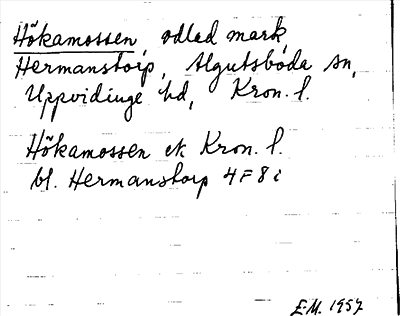 Hökamossen, odlad mark,
Hermanstorp, Älgutsboda sn,
Uppvidinge hd, Kron. l.
Hökamossen ek Kron. l.
bl. Hermanstorp 4F8i
E.M. 1957